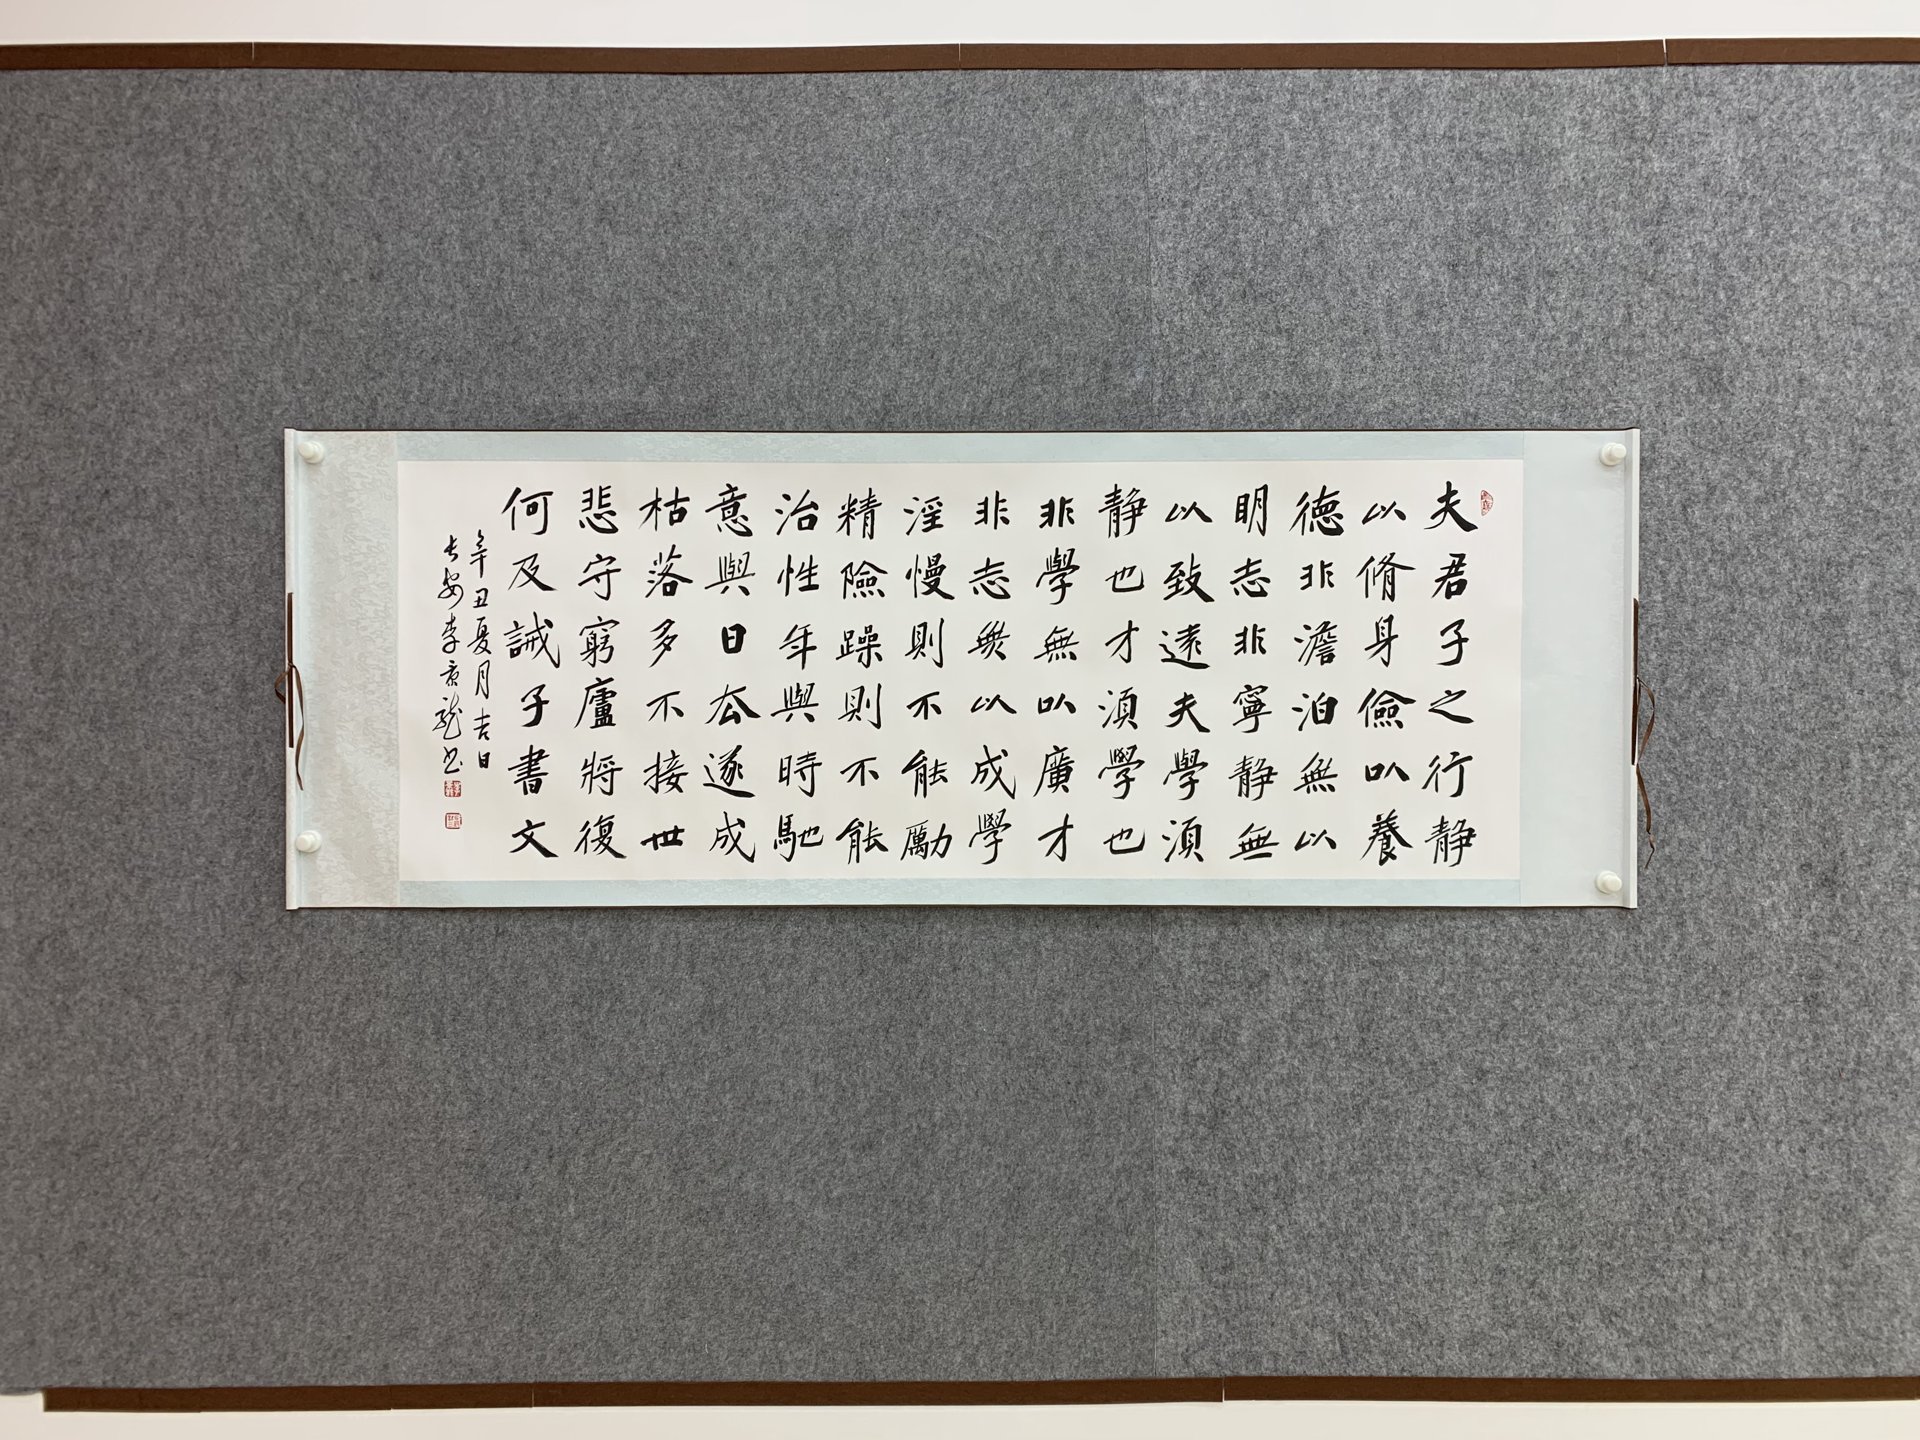 夫君子之行静
以脩身儉以養
德非澹泊無以
明志非寧静無
以致遠夫學須
静也才須學也
非學無以廣才
非志無以成學
淫慢則不能勵
精險躁則不能
治性年與時馳
意與日去遂成
枯落多不接世
悲守窮廬將復
何及誡子書文
辛丑夏月吉日
长安李龍书